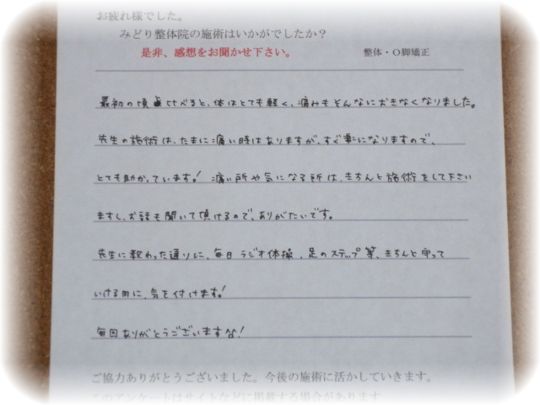 お疲れ様でした。
みどり整体院の施術はいかがでしたか？
是非、感想をお聞かせ下さい。 整体・O脚矯正
最初の頃と比べると、体はとても軽く、痛みもそんなにおきなくなりました。
先生の施術は、たまに痛い時はありますが、すぐ楽になりますので、
とても助かっています！ 痛い所や気になる所は、きちんと施術をして下さい
ますし、お話も聞いて頂けるので、ありがたいです。
先生に教わった通りに、毎日ラジオ体操、足のステップ等、きちんと守って
いける用に、気を付けます！
毎回ありがとうございます!
ご協力ありがとうございました。今後の施術に活かしていきます。
このアンケートはサイトなどに掲載する場合があります